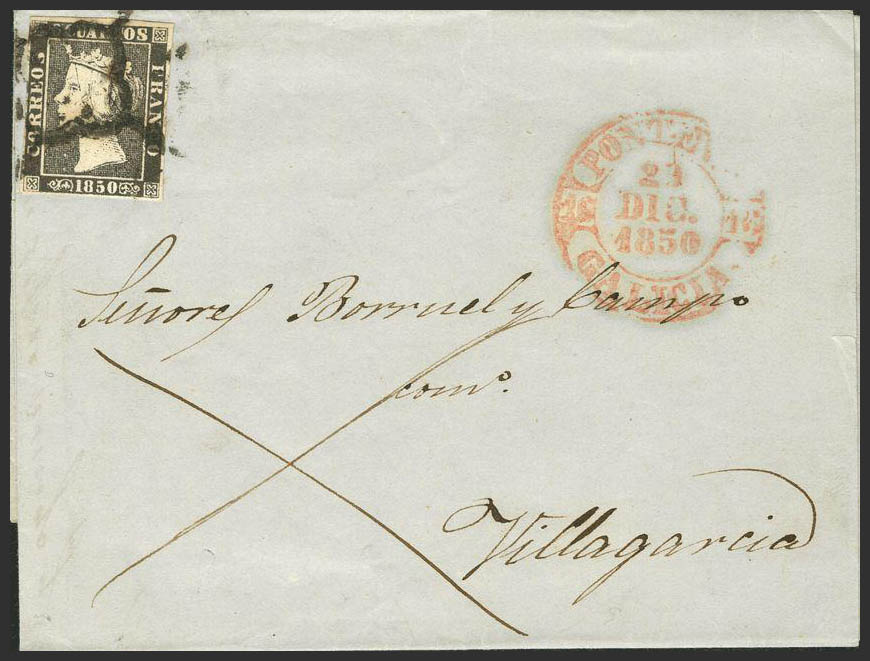 CUARTOS
CORREOS
FRANCO
1850
PONTEV
DIC.
1850
GALICIA
Señores Borruel y Camp.
com.º
Villagarcia